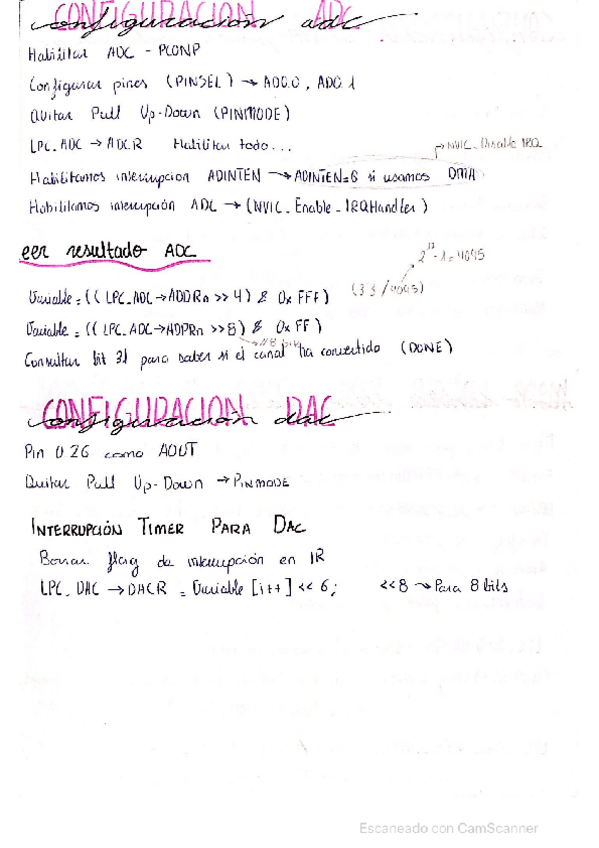 CONFIGURACION ADC
configuración adc
Habilitar ADC - PCONP
Configurar pines (PINSEL) → AD0.0, AD0.1
Quitar Pull Up-Down (PINMODE)
LPC_ADC → ADCR Habilitar todo...
→ NVIC_Disable IRQ
Habilitamos interrupcion ADINTEN → ADINTEN=0 si usamos DMA
Habilitamos interrupción ADC → (NVIC_Enable_IRQHandler)
eer resultado ADC
2^12 - 1 = 4095
Variable = ((LPC_ADC→ADDRn >> 4) & 0xFFF) (3'3/4095)
Variable = ((LPC_ADC→ADDRn >> 8) & 0xFF)
→ 8 bits
Consultar bit 31 para saber si el canal ha convertido (DONE)
CONFIGURACION DAC
configuración dac
Pin 0.26 como AOUT
Quitar Pull Up-Down → PINMODE
INTERRUPCIÓN TIMER PARA DAC
Borrar flag de interrupción en IR
LPC_DAC → DACR = Variable [i++] << 6; <<8 → Para 8 bits
Escaneado con CamScanner